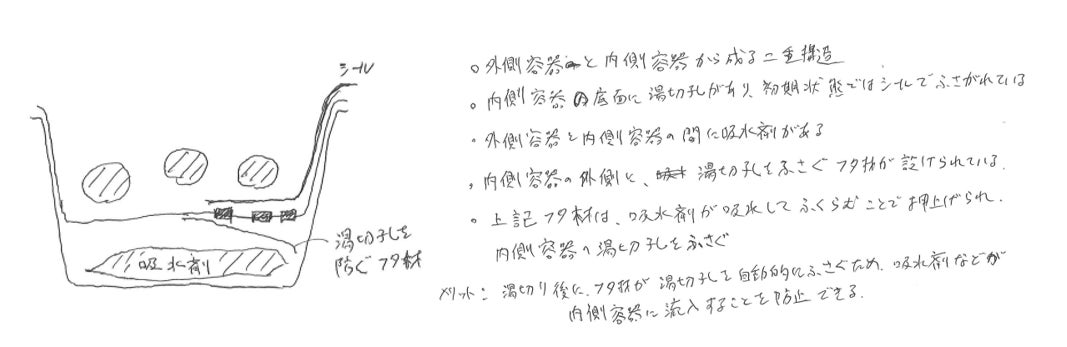 シール
湯切孔を
防ぐフタ材
吸水剤
○ 外側容器と内側容器から成る二重構造
○ 内側容器の底面に湯切孔があり、初期状態ではシールでふさがれている
・外側容器と内側容器の間に吸水剤がある
・内側容器の外側に、湯切孔をふさぐフタ材が設けられている.
○ 上記フタ材は、吸水剤が吸水してふくらむことで押上げられ.
内側容器の湯切孔をふさぐ
メリット: 湯切り後に、フタ材が湯切孔を自動的にふさぐため、吸水剤などが
内側容器に流入することを防止できる.